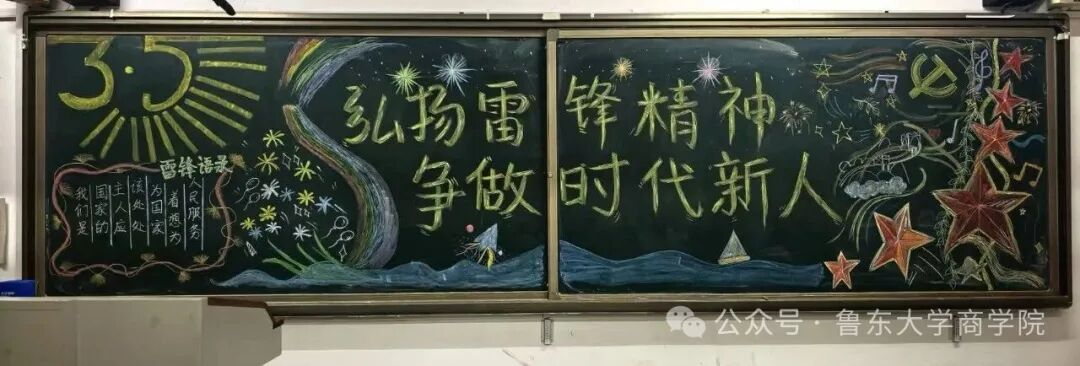 3·5
弘扬雷锋精神
争做时代新人
雷锋语录
我们是
国家的
主人应
该处处
为国家
着想为
人民服务
公众号 · 鲁东大学商学院